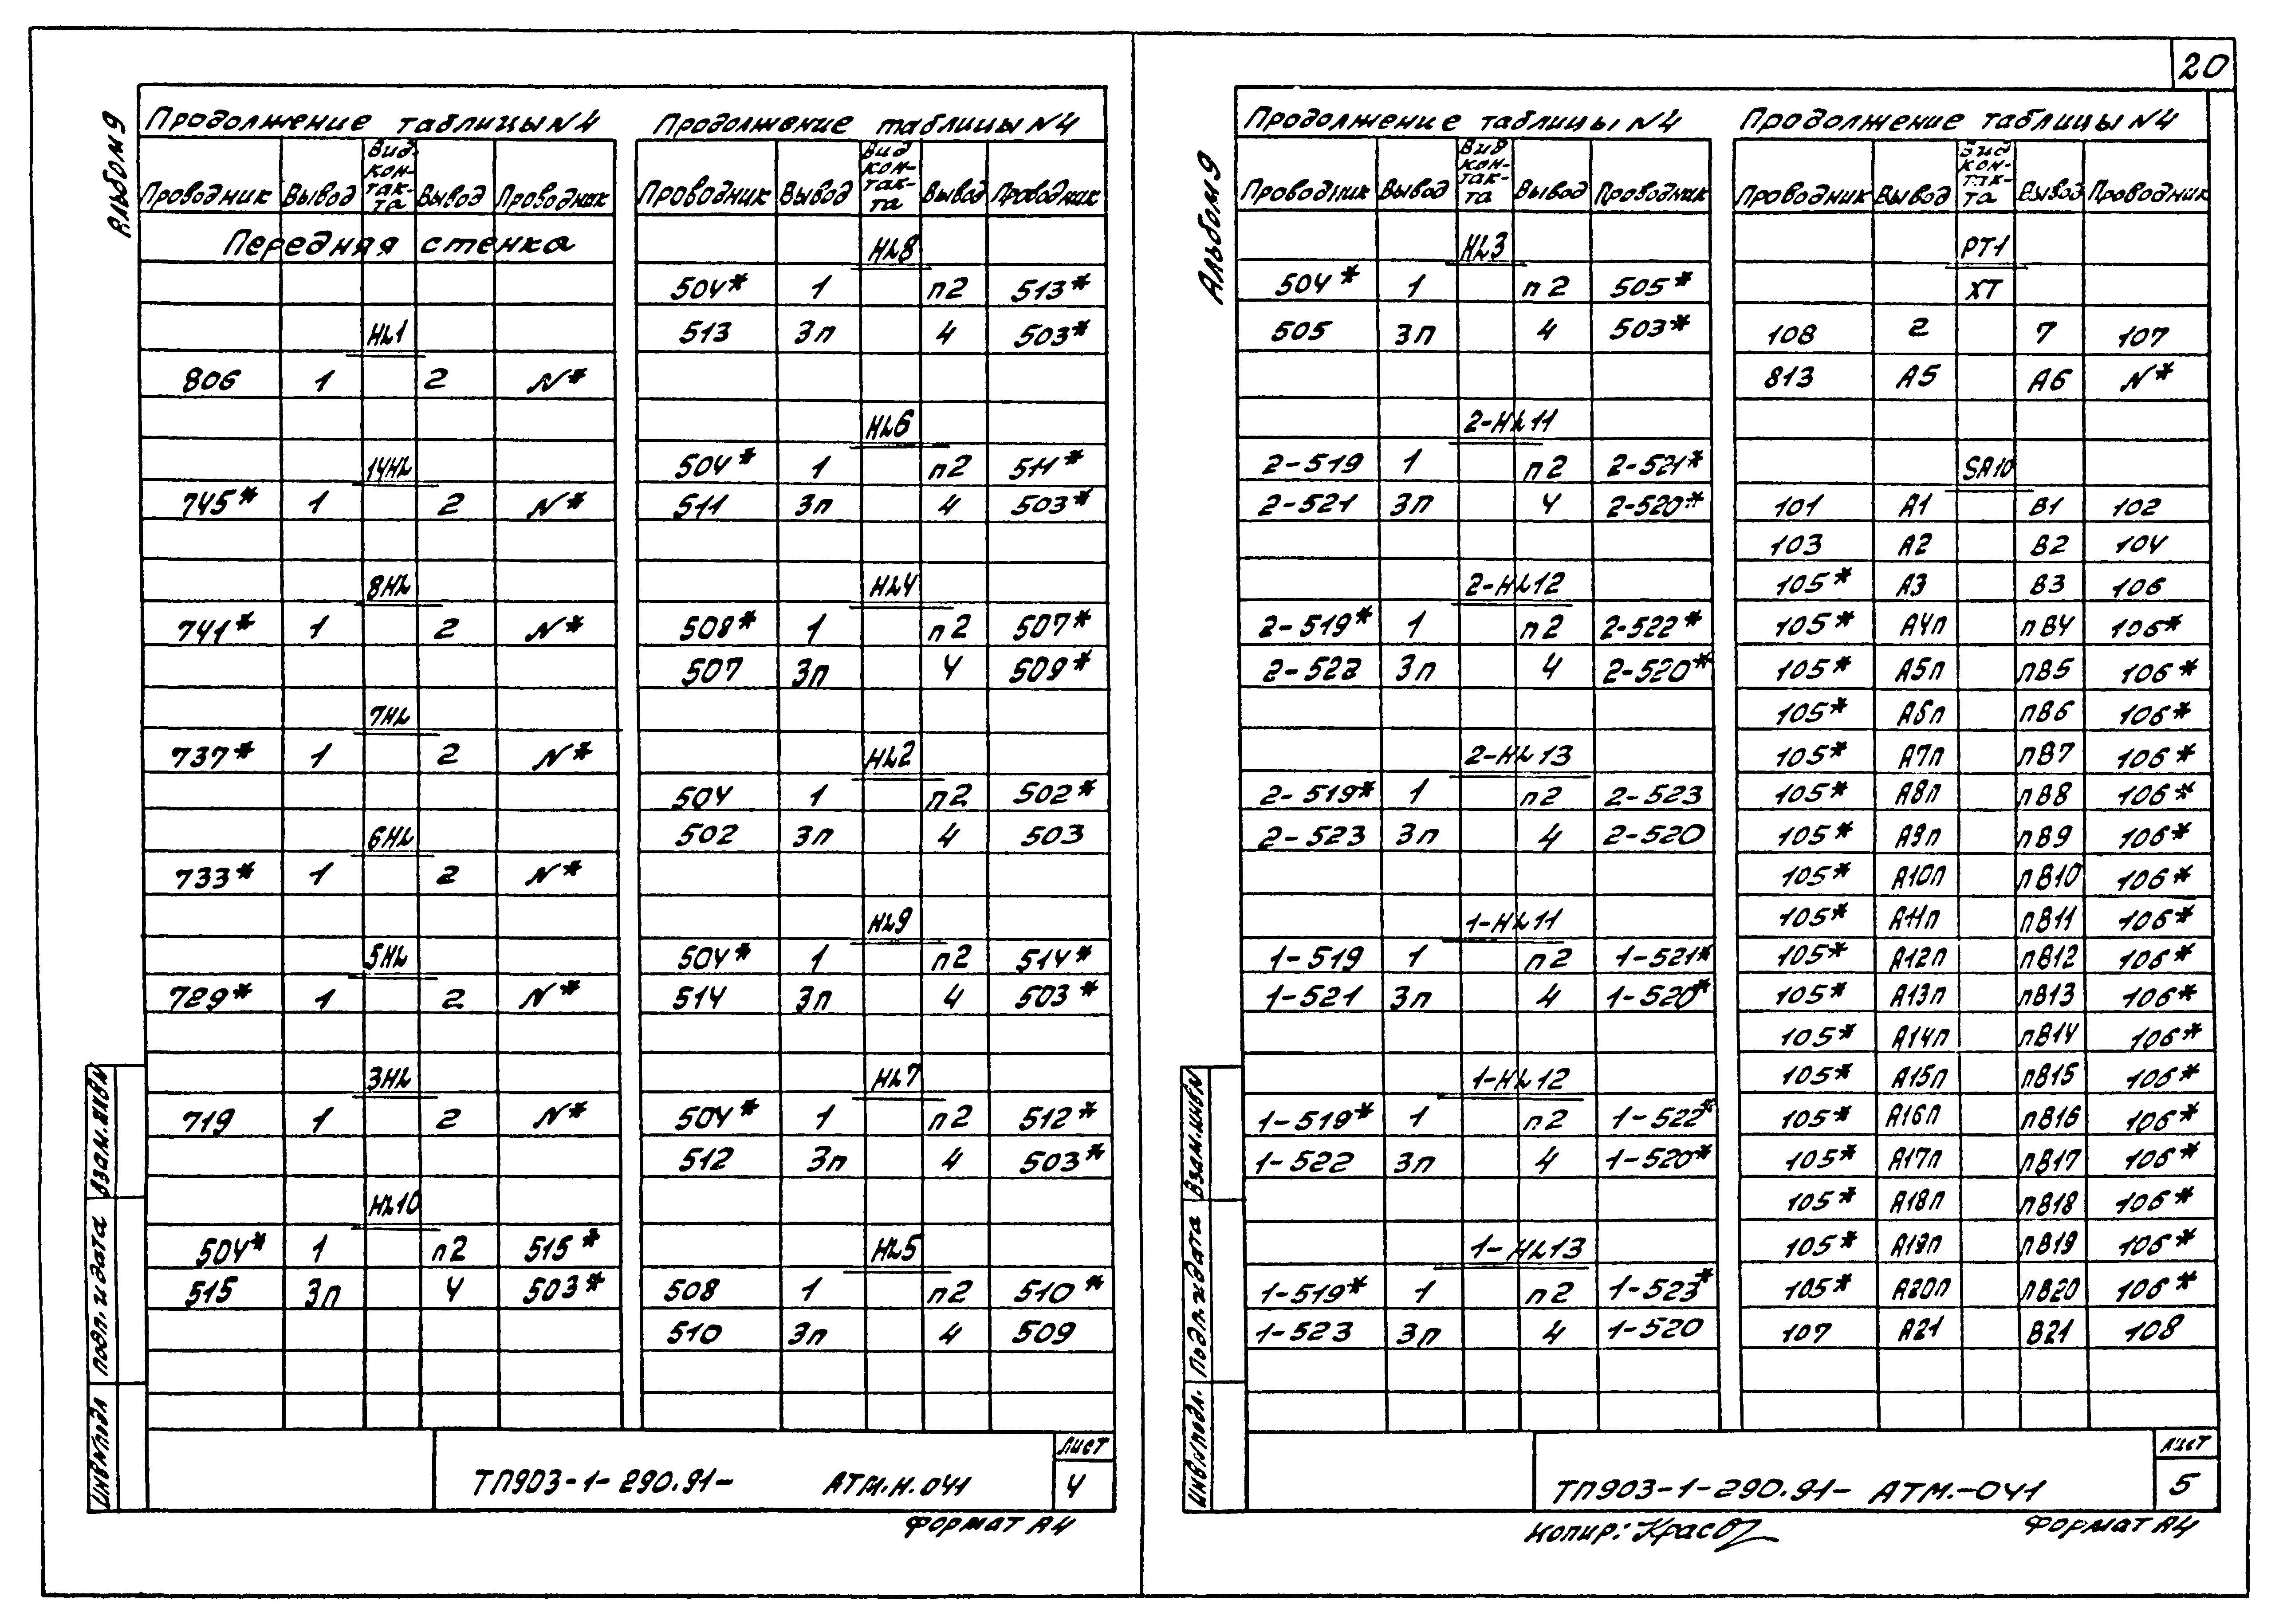 20
Альбом 9
Продолжение таблицы N4
Проводник Вывод Вид кон-так-та Вывод Проводник
Передняя стенка
HL1
806 1 2 N*
14HL
745* 1 2 N*
8HL
741* 1 2 N*
7HL
737* 1 2 N*
6HL
733* 1 2 N*
5HL
729* 1 2 N*
3HL
719 1 2 N*
HL10
504* 1 п2 515*
515 3п 4 503*
Продолжение таблицы N4
Проводник Вывод Вид кон-так-та Вывод Проводник
HL8
504* 1 п2 513*
513 3п 4 503*
HL6
504* 1 п2 511*
511 3п 4 503*
HL4
508* 1 п2 507*
507 3п 4 509*
HL2
504 1 п2 502*
502 3п 4 503
HL9
504* 1 п2 514*
514 3п 4 503*
HL7
504* 1 п2 512*
512 3п 4 503*
HL5
508 1 п2 510*
510 3п 4 509
Взам.инвN
подп. и дата
ИНВ.Nподл
ТП903-1-290.91- АТМ.Н.041
Лист
4
Формат А4
Альбом 9
Продолжение таблицы N4
Проводник Вывод Вид кон-так-та Вывод Проводник
HL3
504* 1 п2 505*
505 3п 4 503*
2-HL11
2-519 1 п2 2-521*
2-521 3п 4 2-520*
2-HL12
2-519* 1 п2 2-522*
2-522 3п 4 2-520*
2-HL13
2-519* 1 п2 2-523
2-523 3п 4 2-520
1-HL11
1-519 1 п2 1-521*
1-521 3п 4 1-520*
1-HL12
1-519* 1 п2 1-522*
1-522 3п 4 1-520*
1-HL13
1-519* 1 п2 1-523*
1-523 3п 4 1-520
Продолжение таблицы N4
Проводник Вывод Вид кон-так-та Вывод Проводник
РТ1
ХТ
108 2 7 107
813 А5 А6 N*
SA10
101 А1 В1 102
103 А2 В2 104
105* А3 В3 106
105* А4п пВ4 106*
105* А5п пВ5 106*
105* А6п пВ6 106*
105* А7п пВ7 106*
105* А8п пВ8 106*
105* А9п пВ9 106*
105* А10п пВ10 106*
105* А11п пВ11 106*
105* А12п пВ12 106*
105* А13п пВ13 106*
105* А14п пВ14 106*
105* А15п пВ15 106*
105* А16п пВ16 106*
105* А17п пВ17 106*
105* А18п пВ18 106*
105* А19п пВ19 106*
105* А20п пВ20 106*
107 А21 В21 108
Взам.инвN
Подп.и дата
ИНВ.Nподл.
ТП903-1-290.91- АТМ.-041
Лист
5
Копир:
Формат А4